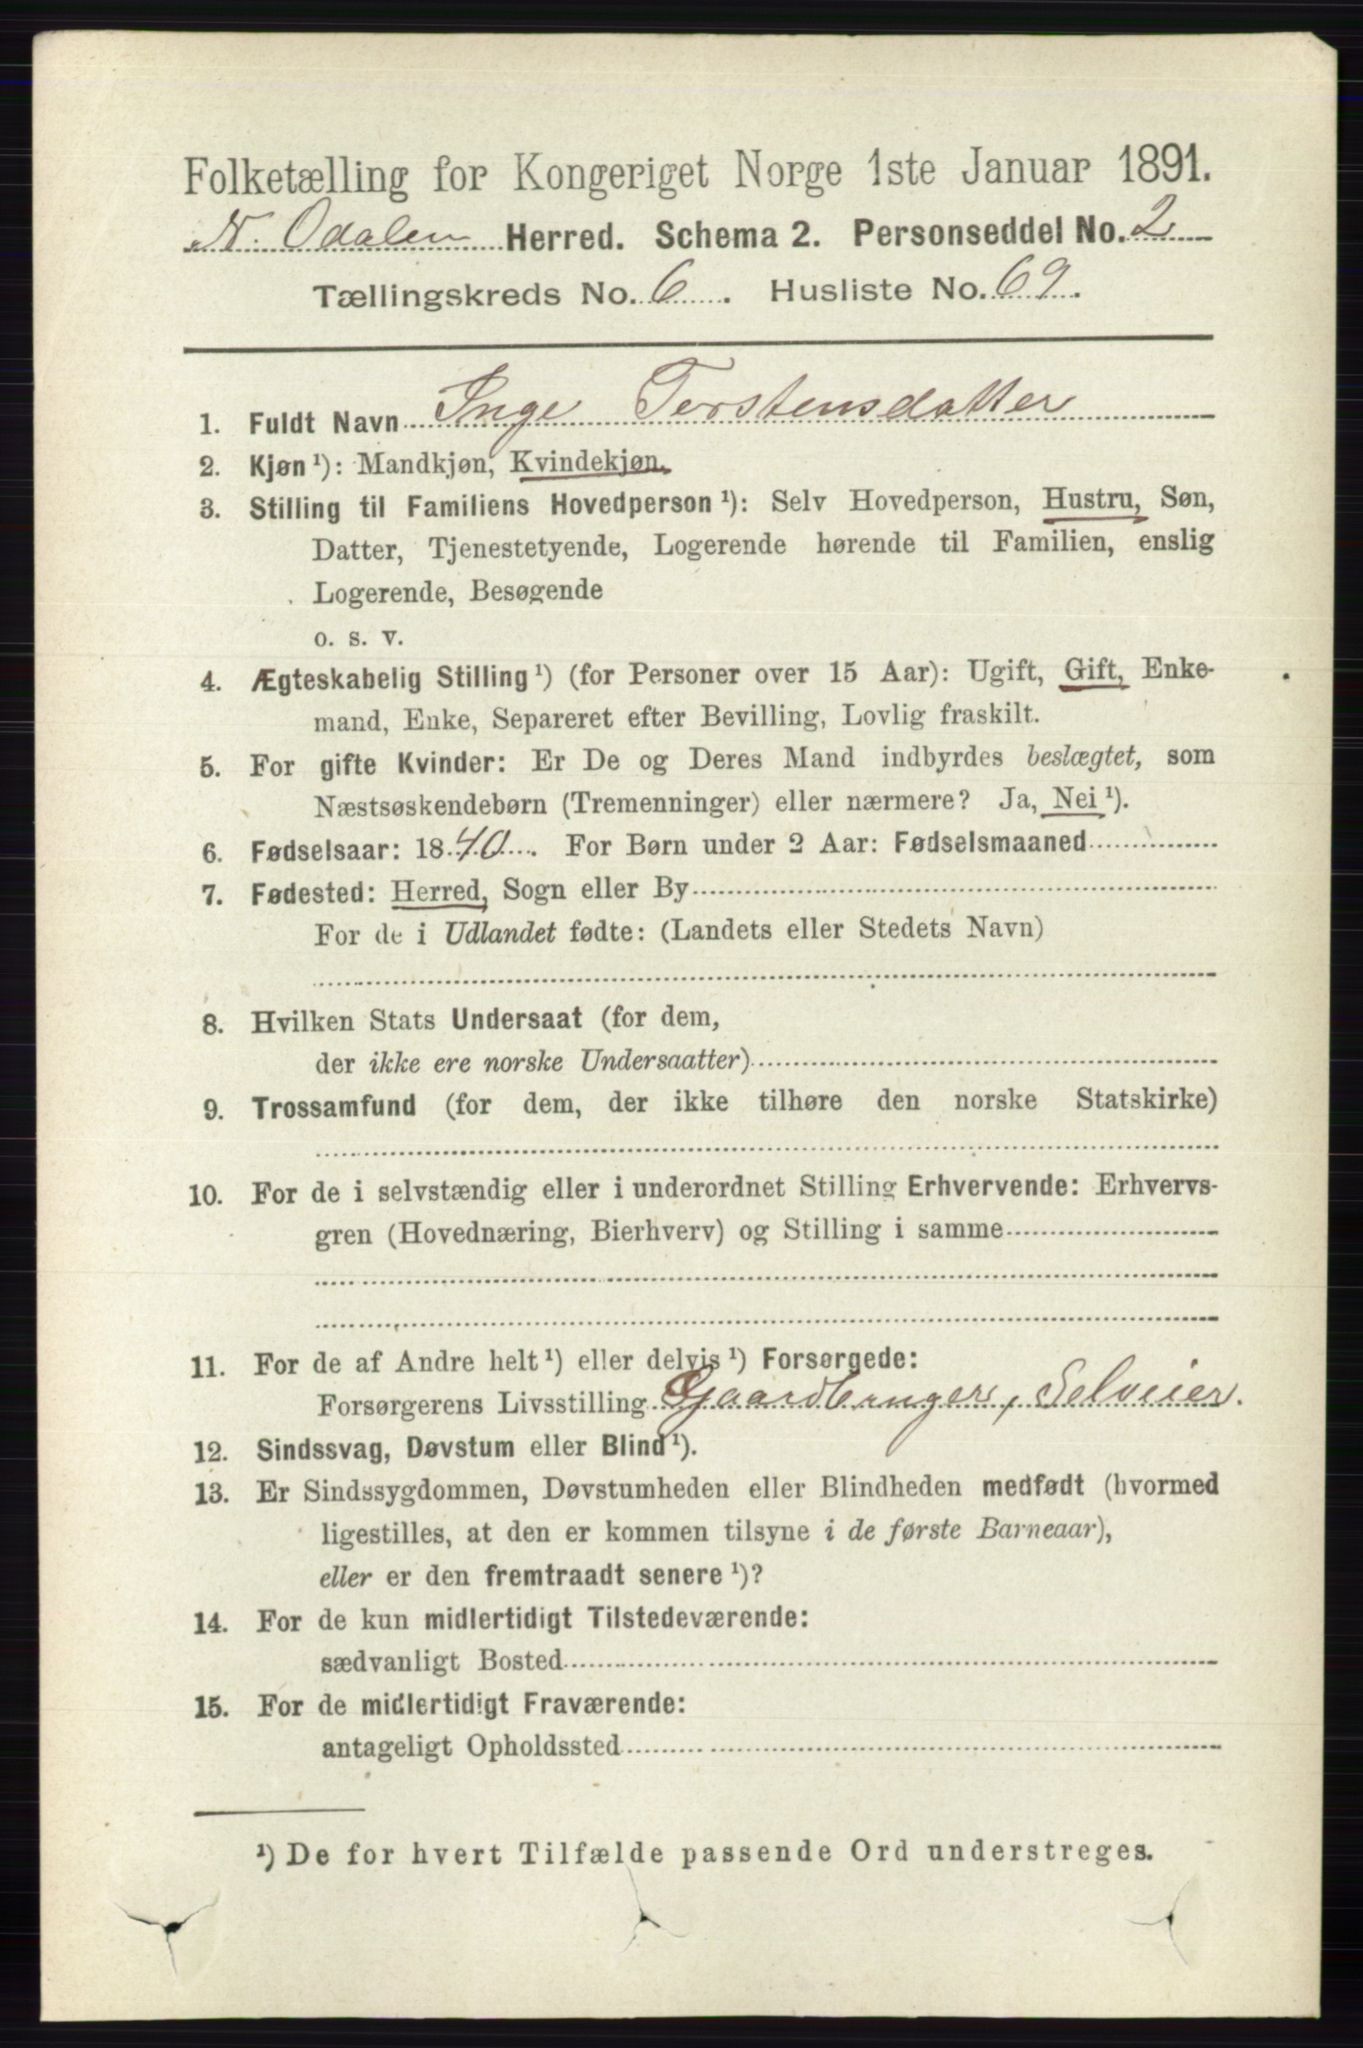 Folketælling for Kongeriget Norge 1ste Januar 1891.
N. Odalen Herred. Schema 2. Personseddel No. 2
Tællingskreds No. 6. Husliste No. 69.
1. Fuldt Navn Inge Torstensdatter
2. Kjøn ¹): Mandkjøn, Kvindekjøn.
3. Stilling til Familiens Hovedperson ¹): Selv Hovedperson, Hustru, Søn,
Datter, Tjenestetyende, Logerende hørende til Familien, enslig
Logerende, Besøgende
o. s. v.
4. Ægteskabelig Stilling ¹) (for Personer over 15 Aar): Ugift, Gift, Enke-
mand, Enke, Separeret efter Bevilling, Lovlig fraskilt.
5. For gifte Kvinder: Er De og Deres Mand indbyrdes beslægtet, som
Næstsøskendebørn (Tremenninger) eller nærmere? Ja, Nei ¹).
6. Fødselsaar: 1840. For Børn under 2 Aar: Fødselsmaaned
7. Fødested: Herred, Sogn eller By
For de i Udlandet fødte: (Landets eller Stedets Navn)
8. Hvilken Stats Undersaat (for dem,
der ikke ere norske Undersaatter)
9. Trossamfund (for dem, der ikke tilhøre den norske Statskirke)
10. For de i selvstændig eller i underordnet Stilling Erhvervende: Erhvervs-
gren (Hovednæring, Bierhverv) og Stilling i samme
11. For de af Andre helt ¹) eller delvis ¹) Forsørgede:
Forsørgerens Livsstilling Gaardbruger, Selveier.
12. Sindssvag, Døvstum eller Blind ¹).
13. Er Sindssygdommen, Døvstumheden eller Blindheden medfødt (hvormed
ligestilles, at den er kommen tilsyne i de første Barneaar),
eller er den fremtraadt senere ¹)?
14. For de kun midlertidigt Tilstedeværende:
sædvanligt Bosted
15. For de midlertidigt Fraværende:
antageligt Opholdssted
¹) De for hvert Tilfælde passende Ord understreges.